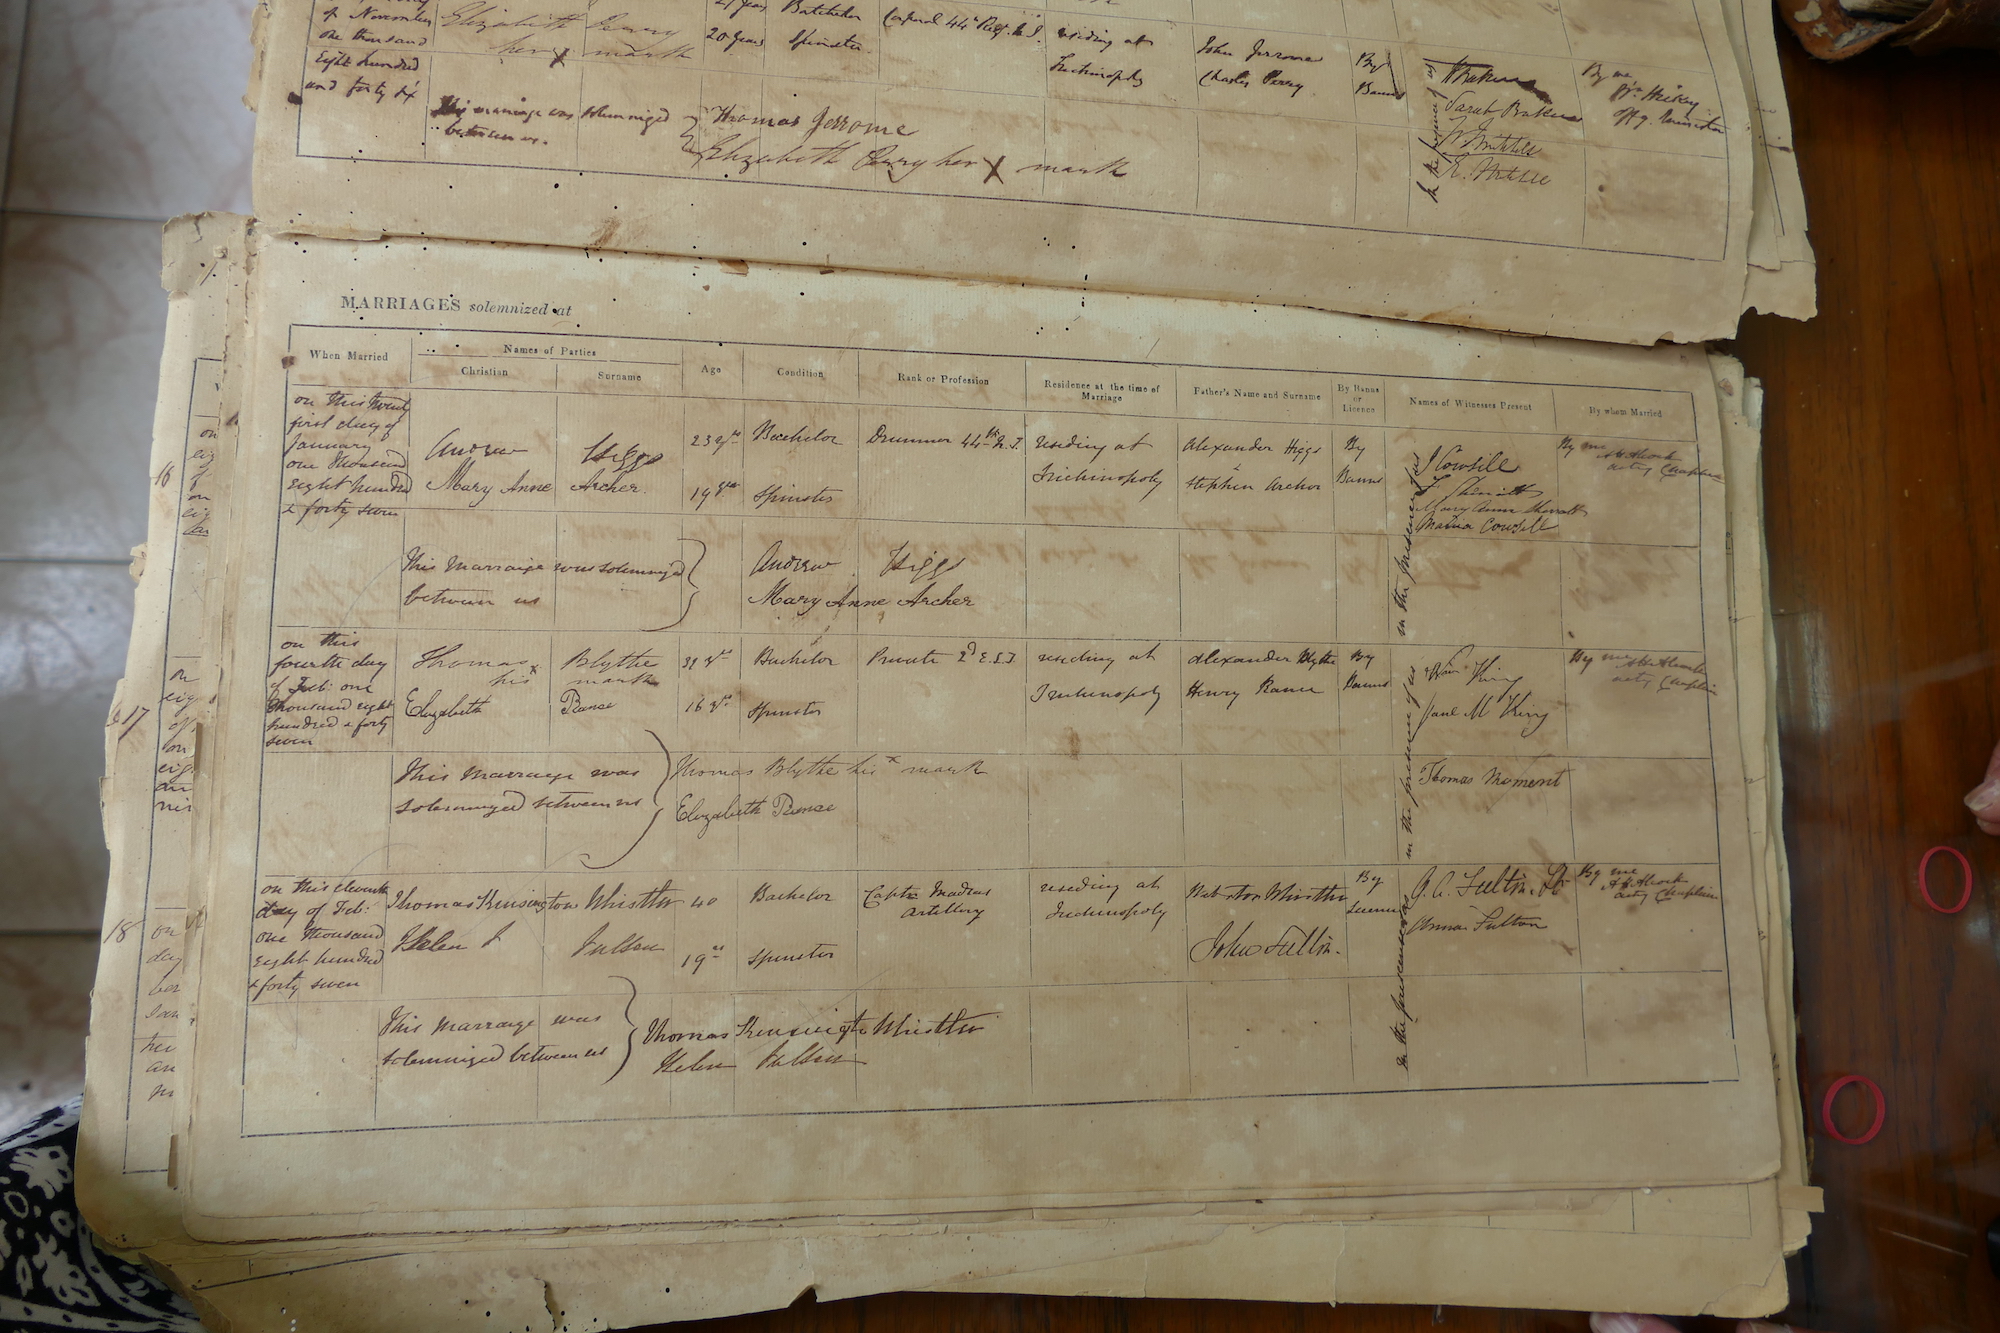 of November
one thousand
Eight hundred
and forty six
Elizabeth Perry
her x mark
20 years
Batchelor
Spinster
Corporal 44th Regt. N.I.
residing at
Trichinopoly
John Jerrome
Charles Perry
By
Banns
Sarah
By me
This marriage was solemnized
between us.
Thomas Jerrome
Elizabeth Perry her X mark
In the presence of us
MARRIAGES solemnized at
When Married
Names of Parties
Christian
Surname
Age
Condition
Rank or Profession
Residence at the time of
Marriage
Father's Name and Surname
By Banns
or
Licence
Names of Witnesses Present
By whom Married
on this twenty
first day of
January
one thousand
eight hundred
& forty seven
Andrew Higgs
Mary Anne Archer.
23 yrs
19 yrs
Bachelor
Spinster
Drummer 44th N.I.
residing at
Trichinopoly
Alexander Higgs
Stephen Archer
By
Banns
J Cowsill
Mary Anne Sherratt
Maria Cowsill
In the presence of us
By me
acting Chaplain
This marraige was solemnized
between us
Andrew Higgs
Mary Anne Archer
on this
fourth day
of Feb: one
thousand eight
hundred & forty
seven
Thomas Blythe
his x mark
Elizabeth
16 yrs
Bachelor
Spinster
Private 2d E.L.I.
residing at
Trichinopoly
Alexander Blythe
Henry
By
Banns
Wm King
Jane M King
In the presence of us
By me
acting Chaplain
This marraige was
solemnized between us
Thomas Blythe his x mark
Elizabeth
Thomas Moment
16
17
18
on this eleventh
day of Feb:
one thousand
eight hundred
& forty seven
Thomas Kensington Whistler
Helen J Fulton
40
19
Bachelor
Spinster
Captn Madras
Artillery
residing at
Trichinopoly
Whistler
John Fulton.
By
Licence
G. A. Fulton
Anna Fulton
In the presence of us
By me
acting Chaplain
This marraige was
solemnized between us
Thomas Kensington Whistler
Helen Fulton